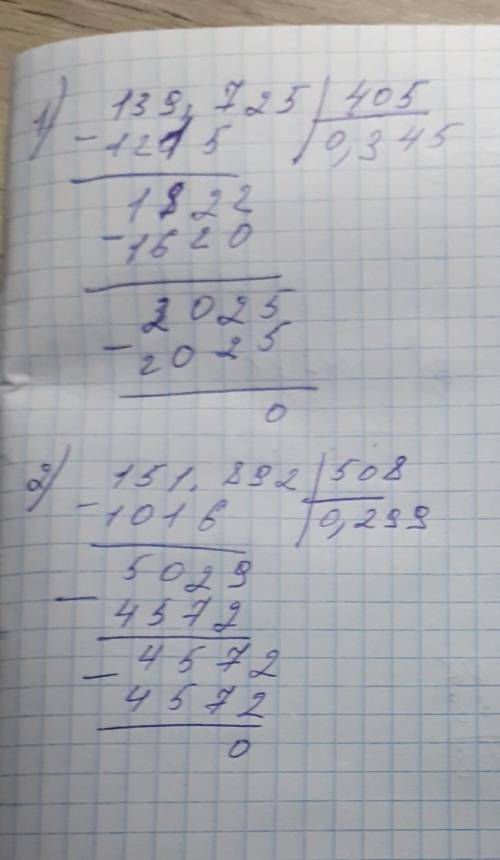 1) 139,725 | 405
-1215 | 0,345
1822
-1620
2025
-2025
0
2) 151.892 | 508
-1016 | 0,299
5029
-4572
4572
-4572
0